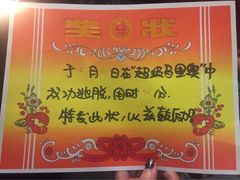 奖状
于 月 日在"超级马里奥"中
成功逃脱,用时 分
特发此状,以兹鼓励!